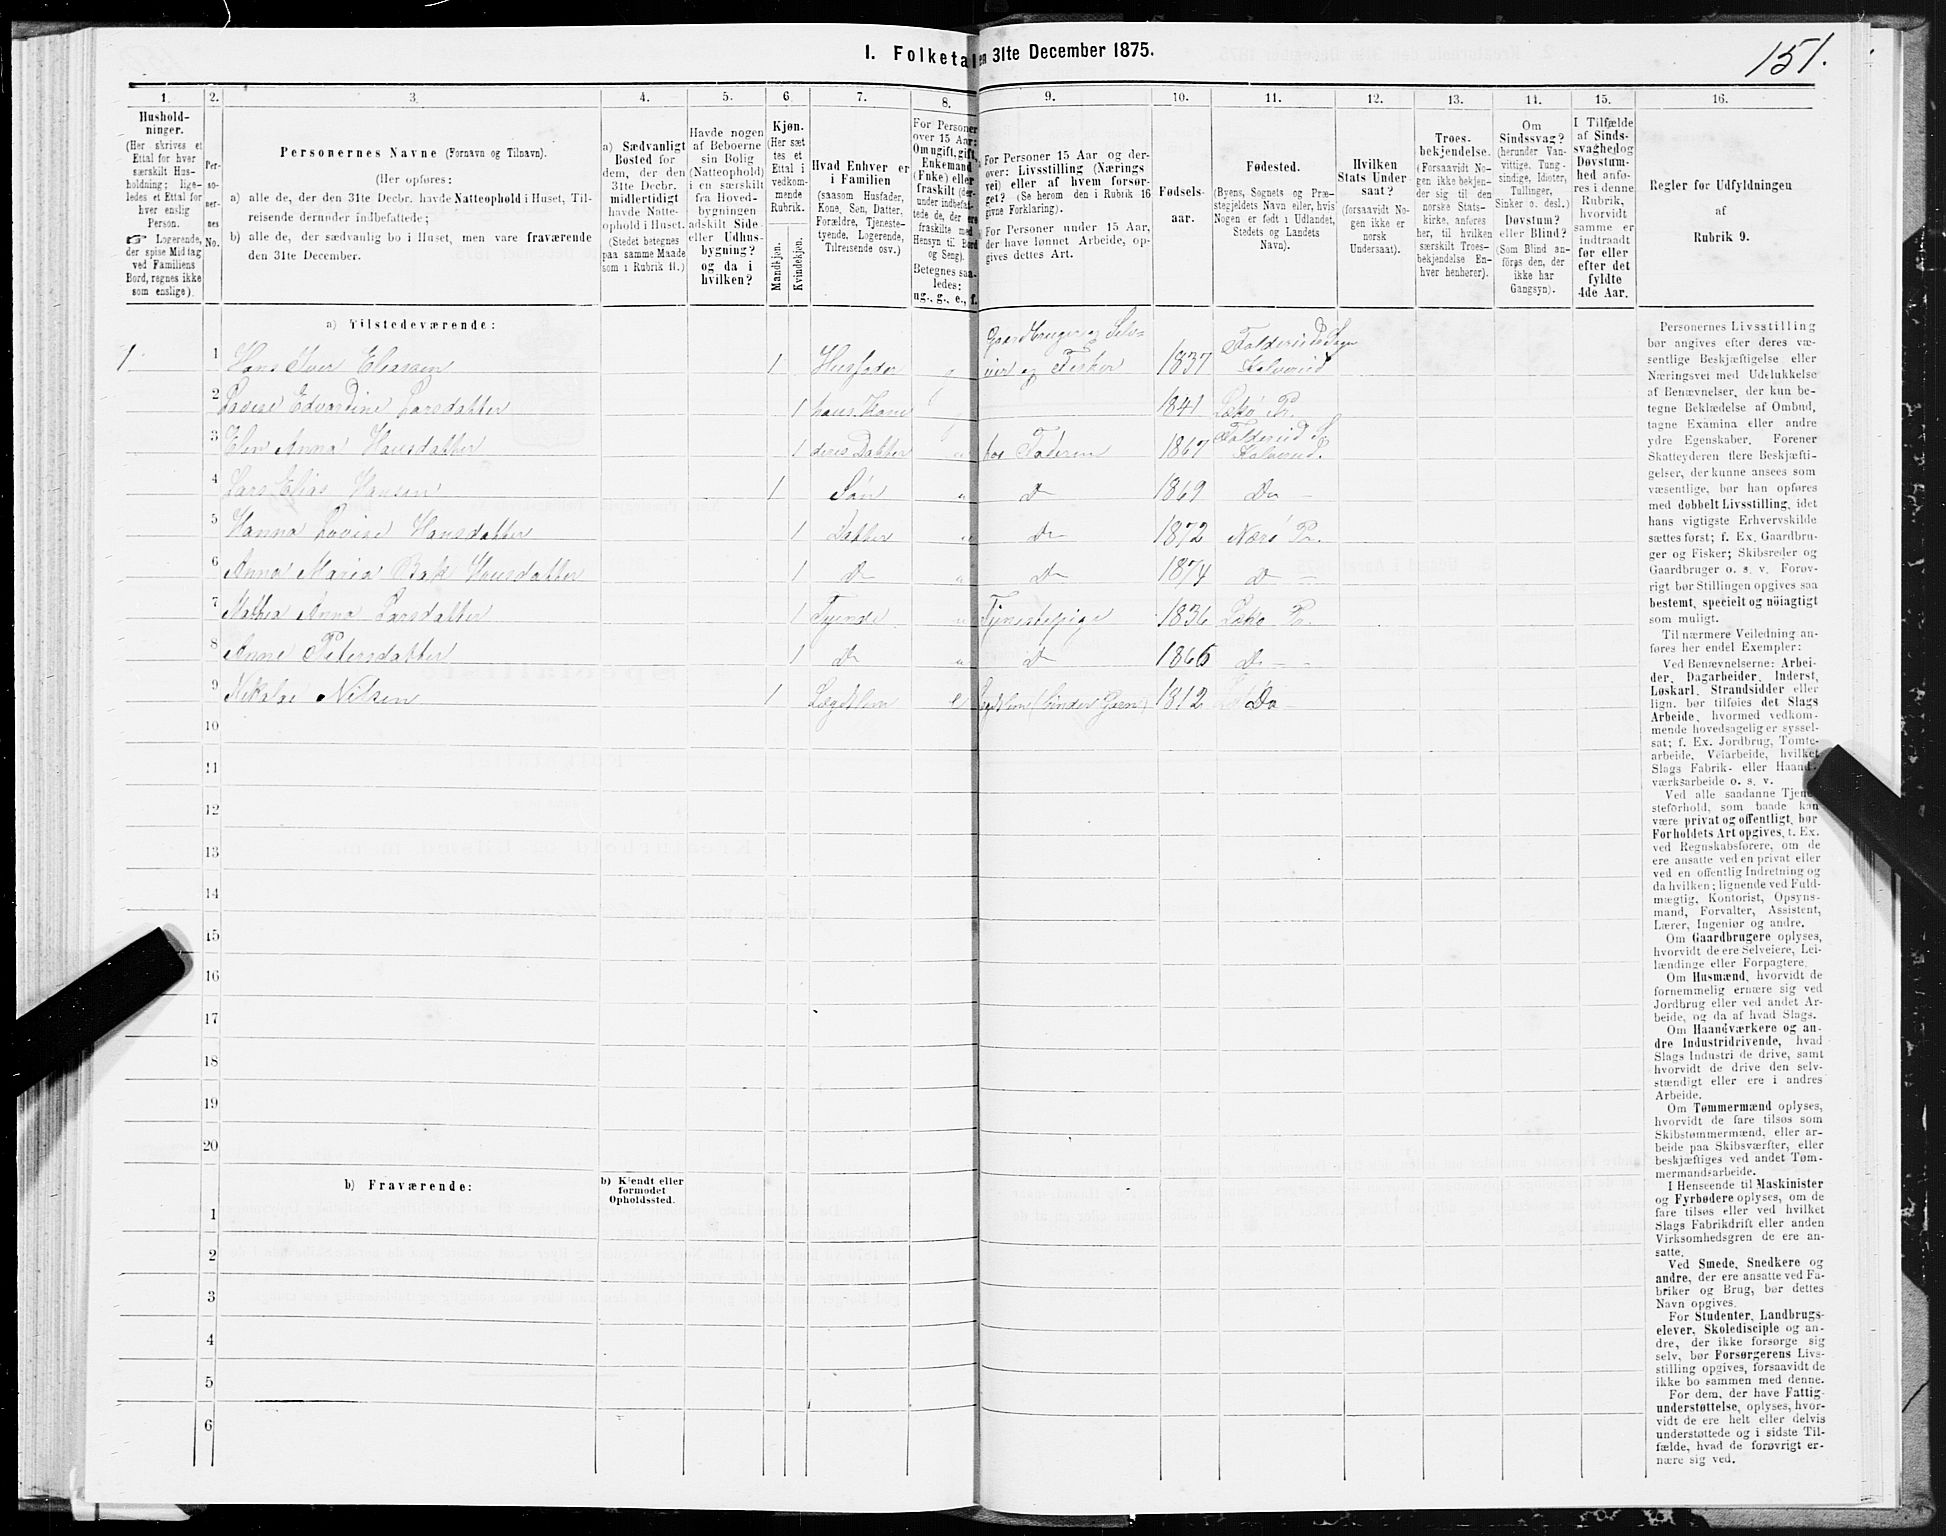 151.
I. Folketal en 31te December 1875.
1. 2. 3. 4. 5. 6. 7. 8. 9. 10. 11. 12. 13. 14. 15. 16.
Hushold-
ninger.
(Her skrives et
Ettal for hver
særskilt Hus-
holdning; lige-
ledes et Ettal for
hver enslig
Person.
☞ Logerende,
der spise Middag
ved Familiens
Bord, regnes ikke
som enslige).
Per-
so-
ner-
nes
No.
Personernes Navne (Fornavn og Tilnavn).
(Her opføres:
a) alle de, der den 31te Decbr. havde Natteophold i Huset, Til-
reisende derunder indbefattede;
b) alle de, der sædvanlig bo i Huset, men vare fraværende
den 31te December.
a) Sædvanligt
Bosted for
dem, der den
31te Decbr.
midlertidigt
havde Natte-
ophold i Huset.
(Stedet betegnes
paa samme Maade
som i Rubrik 11.)
Havde nogen
af Beboerne
sin Bolig
(Natteophold)
i en særskilt
fra Hoved-
bygningen
adskilt Side-
eller Udhus-
bygning?
og da i
hvilken?
Kjøn.
(Her sæt
tes et
Ettal i
vedkom-
mende
Rubrik.
Mandkjøn.
Kvindekjøn.
Hvad Enhver er
i Familien
(saasom Husfader,
Kone, Søn, Datter,
Forældre, Tjeneste-
tyende, Logerende,
Tilreisende osv.)
For Personer
over 15 Aar:
Om ugift, gift,
Enkemand
(Enke) eller
fraskilt (der-
under indbefat-
tede de, der ere
fraskilte med
Hensyn til Bord
og Seng).
Betegnes saa-
ledes:
ug., g., e., f.
For Personer 15 Aar og der-
over: Livsstilling (Nærings
vei) eller af hvem forsør-
get? (Se herom den i Rubrik 16
givne Forklaring).
For Personer under 15 Aar,
der have lønnet Arbeide, op-
gives dettes Art.
Fødsels-
aar.
Fødested.
(Byens, Sognets og Præ-
stegjeldets Navn eller, hvis
Nogen er født i Udlandet,
Stedets og Landets
Navn).
Hvilken
Stats Under-
saat?
(forsaavidt No-
gen ikke er
norsk
Undersaat).
Troes-
bekjendelse.
(Forsaavidt No-
gen ikke bekjen-
der sig til den
norske Stats-
kirke, anføres
her, til hvilken
særskilt Troes-
bekjendelse En-
hver henhører).
Om
Sindssvag?
(herunder Van-
vittige, Tung-
sindige, Idioter,
Tullinger,
Sinker o. desl.)
Døvstum?
eller Blind?
(Som Blind an-
føres den, der
ikke har
Gangsyn).
I Tilfælde
af Sinds-
svaghed og
Døvstum-
hed anfø-
res i denne
Rubrik,
hvorvidt
samme er
indtraadt
før eller
efter det
fyldte
4de Aar.
Regler for Udfyldningen
af
Rubrik 9.
a) Tilstedeværende:
1 1 Hans Iver Eliassen 1 Husfader g Gaardbruger og Selv-
eier og Fisker 1837 Foldereid Sogn
Kolvereid
2 Lovise Edvardine Larsdatter 1 hans Kone g 1841 Lekø Pr.
3 Elen Anna Hansdatter 1 deres Datter u hos Faderen 1867 Foldereid S
Kolvereid P.
4 Lars Elias Hansen 1 Søn u Do 1869 Do
5 Hanna Lovise Hansdatter 1 Datter u Do 1872 Nærø Pr.
6 Anna Maria Bak Hansdatter 1 Do u Do 1874 Do
7 Mathea Anna Larsdatter 1 Tyende u Tjenestepige 1836 Lekø Pr.
8 Anne Petersdatter 1 Do u Do 1866 Do
9 Nikolai Nilsen 1 Lægdslem e Lægdslem (binder Garn) 1812 Do
10
11
12
13
15
16
17
18
19
20
b) Fraværende:
b) Kjendt eller
formodet
Opholdssted.
1
2
3
4
5
6
Personernes Livsstilling
bør angives efter deres væ-
sentlige Beskjæftigelse eller
Næringsvei med Udelukkelse
af Benævnelser, der kun be-
tegne Beklædelse af Ombud,
tagne Examina eller andre
ydre Egenskaber. Forener
Skatteyderen flere Beskjæfti-
gelser, der kunne ansees som
væsentlige, bør han opføres
med dobbelt Livsstilling, idet
hans vigtigste Erhvervskilde
sættes først; f. Ex. Gaardbru-
ger og Fisker; Skibsreder og
Gaardbruger o. s. v. Forøv-
rigt bør Stillingen opgives saa
bestemt, specielt og nöiagtigt
som muligt.
Til nærmere Veiledning an-
føres her endel Exempler:
Ved Benævnelserne: Arbei-
der, Dagarbeider, Inderst,
Løskarl, Strandsidder eller
lign. bør tilføies det Slags
Arbeide, hvormed vedkom-
mende hovedsagelig er syssel-
sat; f. Ex. Jordbrug, Tomte-
arbeide, Veiarbeide, hvilket
Slags Fabrik- eller Haand-
værksarbeide o. s. v.
Ved alle saadanne Tjene-
steforhold, som baade kan
være privat og offentligt, bør
Forholdets Art opgives, t. Ex.
ved Regnskabsførere, om de
ere ansatte ved en privat eller
ved en offentlig Indretning og
da hvilken; lignende ved Fuld-
mægtig, Kontorist, Opsyns-
mand, Forvalter, Assistent,
Lærer, Ingeniør og andre.
Om Gaardbrugere oplyses,
hvorvidt de ere Selveiere, Lei-
lændinge eller Forpagtere.
Om Husmænd, hvorvidt de
fornemmelig ernære sig ved
Jordbrug eller ved andet Ar-
beide, og da af hvad Slags.
Om Haandværkere og an-
dre Industridrivende, hvad
Slags Industri de drive, samt
hvorvidt de drive den selv-
stændigt eller ere i andres
Arbeide.
Om Tømmermænd oplyses,
hvorvidt de fare tilsøs som
Skibstømmermænd, eller ar-
beide paa Skibsværfter, eller
beskjæftiges ved andet Tøm-
mermandsarbeide.
I Henseende til Maskinister
og Fyrbødere oplyses, om de
fare tilsøs eller ved hvilket
Slags Fabrikdrift eller anden
Virksomhedsgren de ere an-
satte.
Ved Smede, Snedkere og
andre, der ere ansatte ved Fa-
briker og Brug, bør dettes
Navn opgives.
For Studenter, Landbrugs-
elever, Skoledisciple og an-
dre, der ikke forsørge sig
selv, bør Forsørgerens Livs-
stilling opgives, forsaavidt de
ikke bo sammen med denne.
For dem, der have Fattig-
understøttelse, oplyses, hvor-
vidt de ere helt eller delvis
understøttede og i sidste Til-
fælde, hvad de forøvrigt er-
nære sig ved.